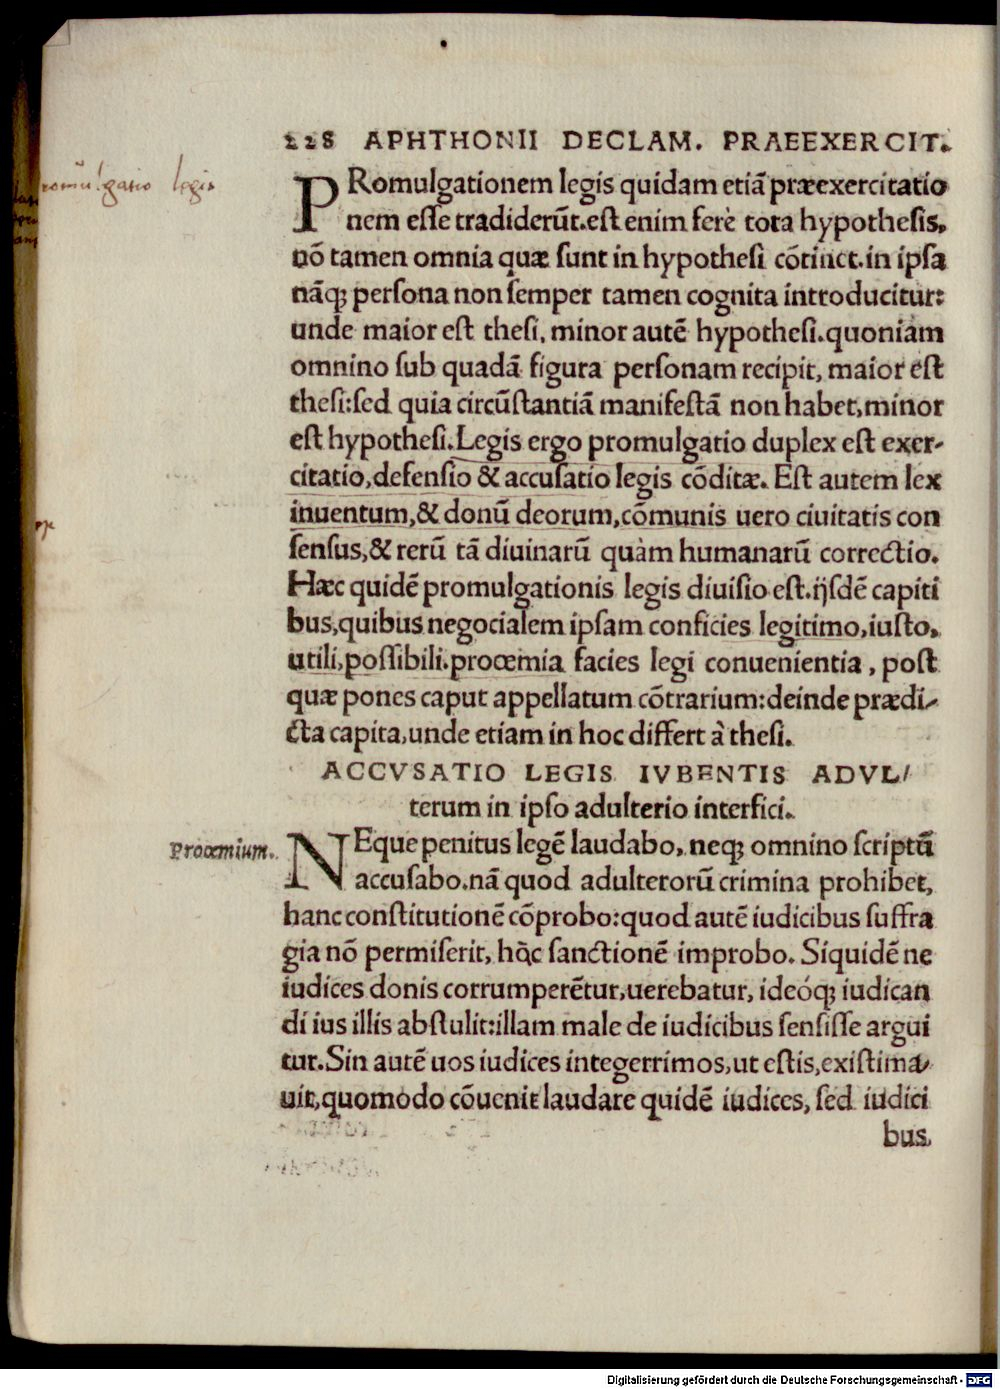 228 APHTHONII DECLAM. PRAEEXERCIT.
PRomulgationem legis quidam etiã præexercitatio
nem esse tradiderũt.est enim ferè tota hypothesis,
nõ tamen omnia quæ sunt in hypothesi cõtinet.in ipsa
nãq; persona non semper tamen cognita introducitur:
unde maior est thesi, minor autẽ hypothesi.quoniam
omnino sub quadã figura personam recipit, maior est
thesi:sed quia circũstantiã manifestã non habet,minor
est hypothesi.Legis ergo promulgatio duplex est exer-
citatio,defensio & accusatio legis cõditæ. Est autem lex
inuentum,& donũ deorum,cõmunis uero ciuitatis con
sensus,& rerũ tã diuinarũ quàm humanarũ correctio.
Hæc quidẽ promulgationis legis diuisio est.ijsdẽ capiti
bus,quibus negocialem ipsam conficies legitimo,iusto,
utili,possibili.proœmia facies legi conuenientia, post
quæ pones caput appellatum cõtrarium:deinde prædi-
cta capita,unde etiam in hoc differt à thesi.
ACCVSATIO LEGIS IVBENTIS ADVL/
terum in ipso adulterio interfici.
Proœmium.
NEque penitus legẽ laudabo, neq; omnino scriptũ
accusabo.nã quod adulterorũ crimina prohibet,
hanc constitutionẽ cõprobo:quod autẽ iudicibus suffra
gia nõ permiserit, hãc sanctionẽ improbo. Siquidẽ ne
iudices donis corrumperẽtur,uerebatur, ideóq; iudican
di ius illis abstulit:illam male de iudicibus sensisse argui
tur.Sin autẽ uos iudices integerrimos,ut estis,existima-
uit,quomodo cõuenit laudare quidẽ iudices, sed iudici
bus
promulgatio legis
Digitalisierung gefördert durch die Deutsche Forschungsgemeinschaft - DFG